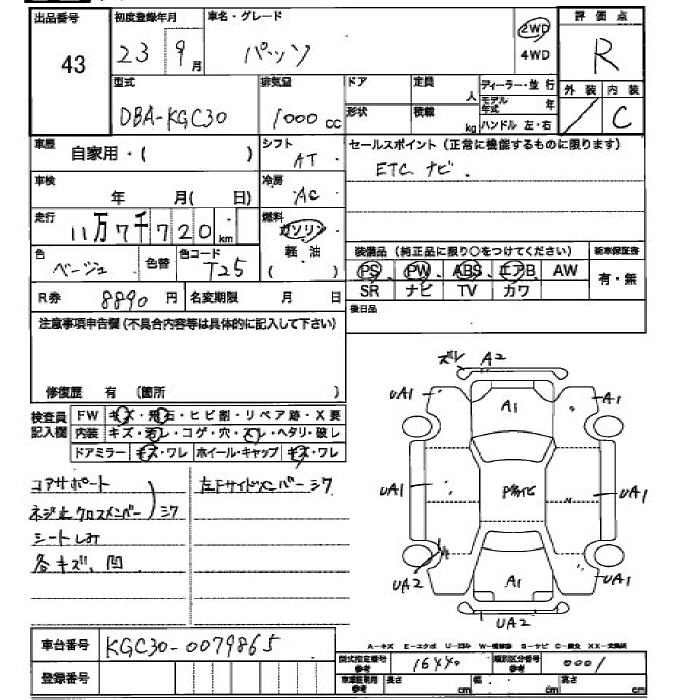 出品番号 43
初度登録年月 23 9月
車名・グレード パッソ
2WD
4WD
評価点 R
型式 DBA-KGC30
排気量 1000 CC
ドア
定員 人
形状
積載 kg
ディーラー・並行
モデル年式 年
ハンドル 左・右
外装 /
内装 C
車歴 自家用・( )
シフト AT
セールスポイント (正常に機能するものに限ります)
ETC ナビ.
車検 年 月( 日)
冷房 AC
走行 11万7千720 km
燃料 ガソリン
軽・油
( )
装備品 (純正品に限り○をつけてください)
新車保証書
PS PW ABS エアB AW
有・無
SR ナビ TV カワ
色 ベージュ 色替
色コード T25
R券 8890 円
名変期限 月 日
後日品
注意事項申告欄 (不具合内容等は具体的に記入して下さい)
修復歴 有 (箇所 )
検査員記入欄
FW キズ・飛石・ヒビ割・リペア跡・X要
内装 キズ・汚レ・コゲ・穴・スレ・ヘタリ・破レ
ドアミラー キズ・ワレ ホイール・キャップ キズ・ワレ
コアサポート
ネジ止クロスメンバー ) シワ
シートしみ
各キズ、凹
左下サイドメンバーシワ
ズレ A2
UA1 A1 A1
UA1 UA1
UA2 A1 UA1
UA2
車台番号 KGC30-0079865
登録番号
型式指定番号 参考 16440
類別区分番号 参考 0001
参考 長さ cm 幅 cm 高さ cm